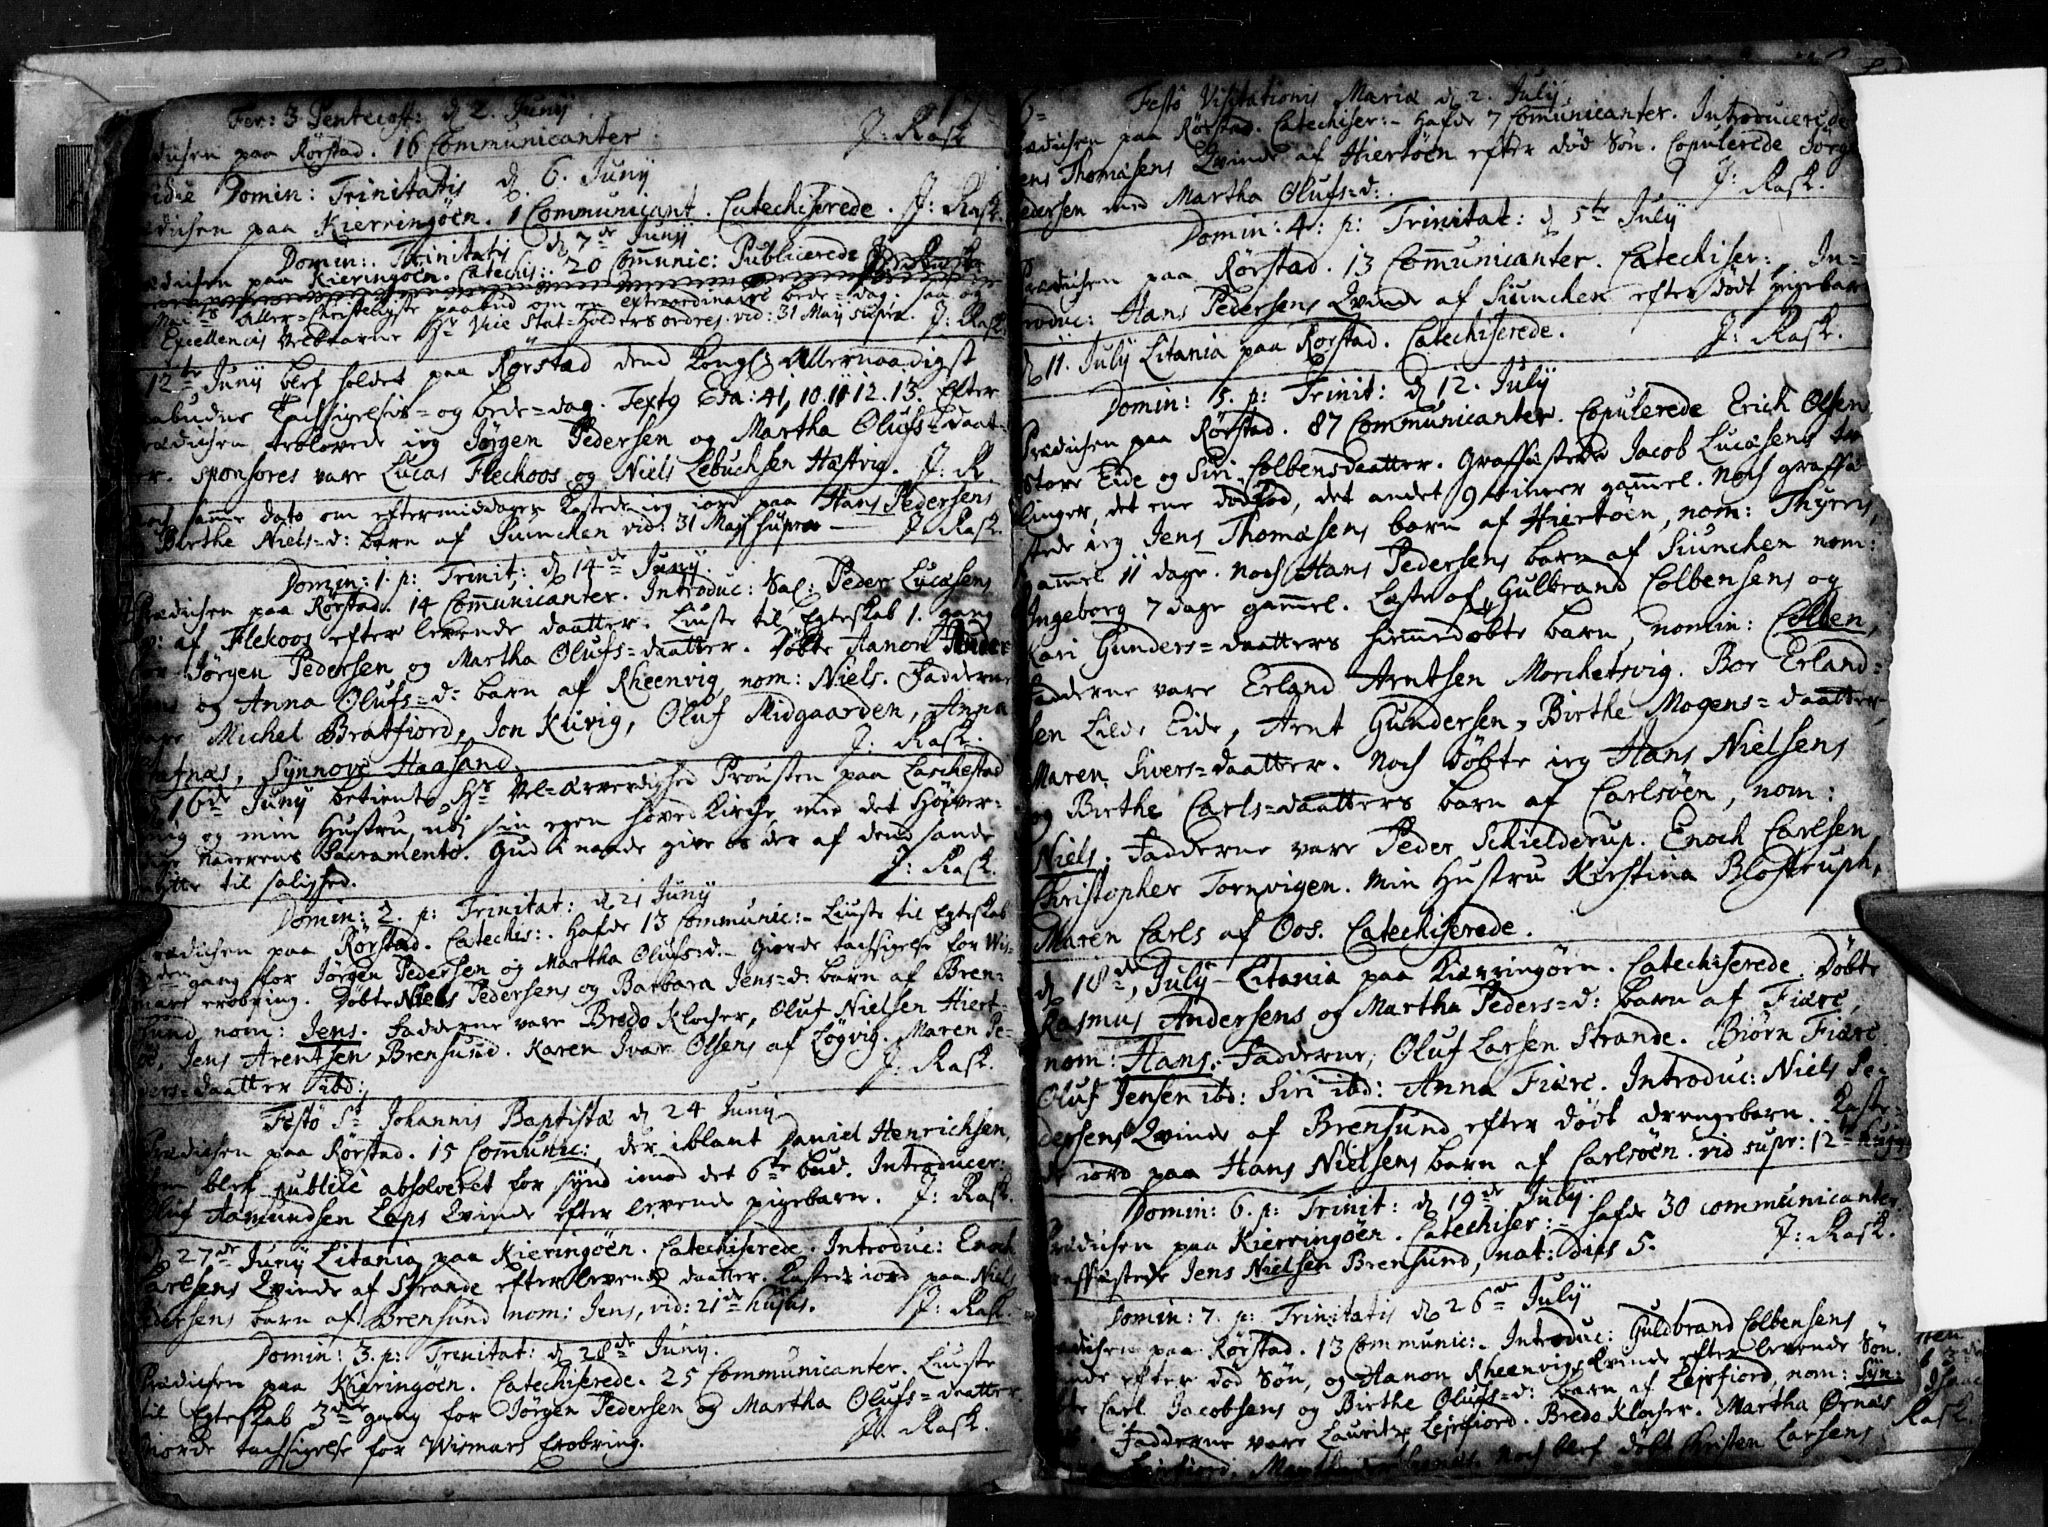 Fer: 3 Pentecost: d 2. Junij
Prædichen paa Rörstad. 16 Communicanter J: Rask
Pridie Domin: Trinitatis d. 6. Junij
Prædichen paa Kierringöen. 1 Communicant. Catechiserede. J: Rask.
Domin: Trinitatis d 7de Junij
Prædichen paa Kieringöen. Catechis:. 20 Comunic: Publicerede
Maits Aller-Christeligste paabud om en extraordinaire bede-dag, saa og
Excellences Velbaarne Hr Vice Stat-Holders ordres. vid: 31 Maij supra. J: Rask.
12te Junij blef holdet paa Rörstad dend Kongl: Allernaadigst
paabudne Tachsigelsis- og bede-dag. Text9 Esa: 41, 10. 11 12. 13. Efter
Prædichen trolovede ieg Jörgen Pedersen og Martha Olufs=daat-
er. Sponsores vare Lucas Flechoos og Niels Lebuchsen Hæstvig. J: R
Noch samme dato om eftermiddagen kastede ieg iord paa Hans Pedersens
Birthe Niels=d: barn af Siunchen vid: 31 Maij supra — J: Rask.
Domin: 1. p: Trinit: d 14de Junij.
Prædichen paa Rörstad. 14 Communicanter. Introduc: Sal: Peder Lucasens
af Flekoos efter levende daatter. Liuste til Egteskab 1. gang
for Jörgen Pedersen og Martha Olufs=daatter. Döbte Aanon Ander-
sens og Anna Olufs=d: barn af Rheenvig nom: Niels. Fadderne
vare Michel Bratfiord, Jon Kuvig, Oluf Midgaarden, Anna
Stafnæs, Synnove Haasand. J: Rask.
d 16de Junij betiente Hr Vel-ærverdighed Prousten paa Laschestad
mig og min Hustru, udi sin egen hoved Kirche, med det Höjver-
dige Naderens Sacramente. Gud i naade give os der af dend sande
nytte til salighed. J: Rask.
Domin: 2. p: Trinitat: d 21 Junij
Prædichen paa Rörstad. Cateches:. Hafde 13 Communic:- Liuste til Egteskab
2den gang for Jörgen Pedersen og Martha Olufs=d. Giorde tachsigelse for Wis-
mars erobring. Döbte Niels Pedersens og Barbara Jens=d: barn af Bren-
sund nom: Jens. Fadderne vare Bredo Klocher, Oluf Nielsen Hiert-
öe, Jens Arentsen Brensund. Karen Ivar Olsens af Lögvig. Maren Pe-
ders=daatter ibd: J: Rask.
Festö St Johannis Baptistæ d 24 Junij
Prædichen paa Rörstad. 15 Communic:, der iblant Daniel Henrichsen,
som blef publice absolveret for synd imod det 6te bud. Introducer:
Oluf Aamundsen Laps Qvinde efter levende pigebarn. J: Rask.
d 27de Junij Litania paa Kieringöen. Catechiserede. Introduc: Enoch
Carlsens Qvinde af Strande efter levende daatter. Kastede iord paa Niels
Pedersens barn af Brensund nom: Jens, vid: 21de hujus. J: Rask.
Domin: 3. p: Trinitat: d 28de Junij.
Prædichen paa Kieringöen. Catechiserede. 25 Communicanter. Liuste
til Egteskab 3die gang for Jörgen Pedersen og Martha Olufs=daatter
Giorde tachsigelse for Wismars Erobring. J: Rask.
Festö Visitationis Mariæ d 2. July.
Prædichen paa Rörstad. Catechiser:- Hafde 7 Comunicanter. Introducerede
Jens Thomasens Qvinde af Hiertöen efter död Sön. Copulerede Jörgen
Pedersen med Martha Olufs=d: J: Rask.
Domin: 4. p: Trinitat: d 5te July
Prædichen paa Rörstad. 13 Comunicanter. Catechiser:, In-
troduc: Hans Pedersens Qvinde af Siunchen efter dödt pigebarn
J: Rask.
d 11. July Litania paa Rörstad. Catechiserede.
Domin: 5. p: Trinit: d 12. July
Prædichen paa Rörstad. 87 Communicanter. Copulerede Erich Olsen
Store Eide og Siri Colbensdaatter. Graffæstede Jacob Lucæsens tv
linger, det ene dödföd, det andet 9 timer gammel. Noch graffæ-
stede ieg Jens Thomasens barn af Hiertöen, nom: Thyrris,
gammel 11 dage. Noch Hans Pedersens barn af Siunchen nom:
Ingeborg 7 dage gammel. Læste of. Gulbrand Colbensens og
Kari Gunders=daatters hiemmedöbte barn, nomin: Colben,
Fadderne vare Erland Arntsen Morchetsvig. Bor Erland-
sen Lilde Eide, Arnt Gundersen, Birthe Mogens=daatter,
Maren Sivers=daatter. Noch döbte ieg Hans Nielsens
og Birthe Carls=daatters barn af Carlsöen, nom:
Niels. Fadderne vare Peder Schielderup. Enoch Carlsen
Christopher Tornvigen. Min Hustru Kirstina Blostruph,
Maren Carls af Oos. Catechiserede.
d 18de July Litania paa Kierringöen. Catechiserede. Döbte
Rasmus Andersens og Martha Peders=d: barn af Fiære,
nom: Hans. Fadderne, Oluf Larsen Strande. Biörn Fiære.
Oluf Jensen ibd: Siri ibd: Anna Fiære. Introduc: Niels Pe-
dersens Qvinde af Brensund efter dödt drengebarn. Kaste-
de iord paa Hans Nielsens barn af Carlsöen. vid supr: 12te hujus
Domin: 6. p: Trinit: d 19de July.
Prædichen paa Kierringöen. Catechiser:- Hafde 30 communicanter
Graffæstede Jens Nielsen Brensund, nat: dies 5. J: Rask.
Domin: 7. p: Trinitatis d 26de July
Prædichen paa Rörstad. 13 Communic:- Introduc: Guldbrand Colbensens
Qvinde efter död Sön, og Hanon Rheenvigs Qvinde efter levende Sön.
Döbte Carl Jacobsens og Birthe Olufs=d: barn af Lejrfiord, nom: Syn-
Fadderne vare Lauritz Lejrfiord. Bredo Klocher. Martha Ørnæs
Noch blef döbt Christen Larsens
Rask.